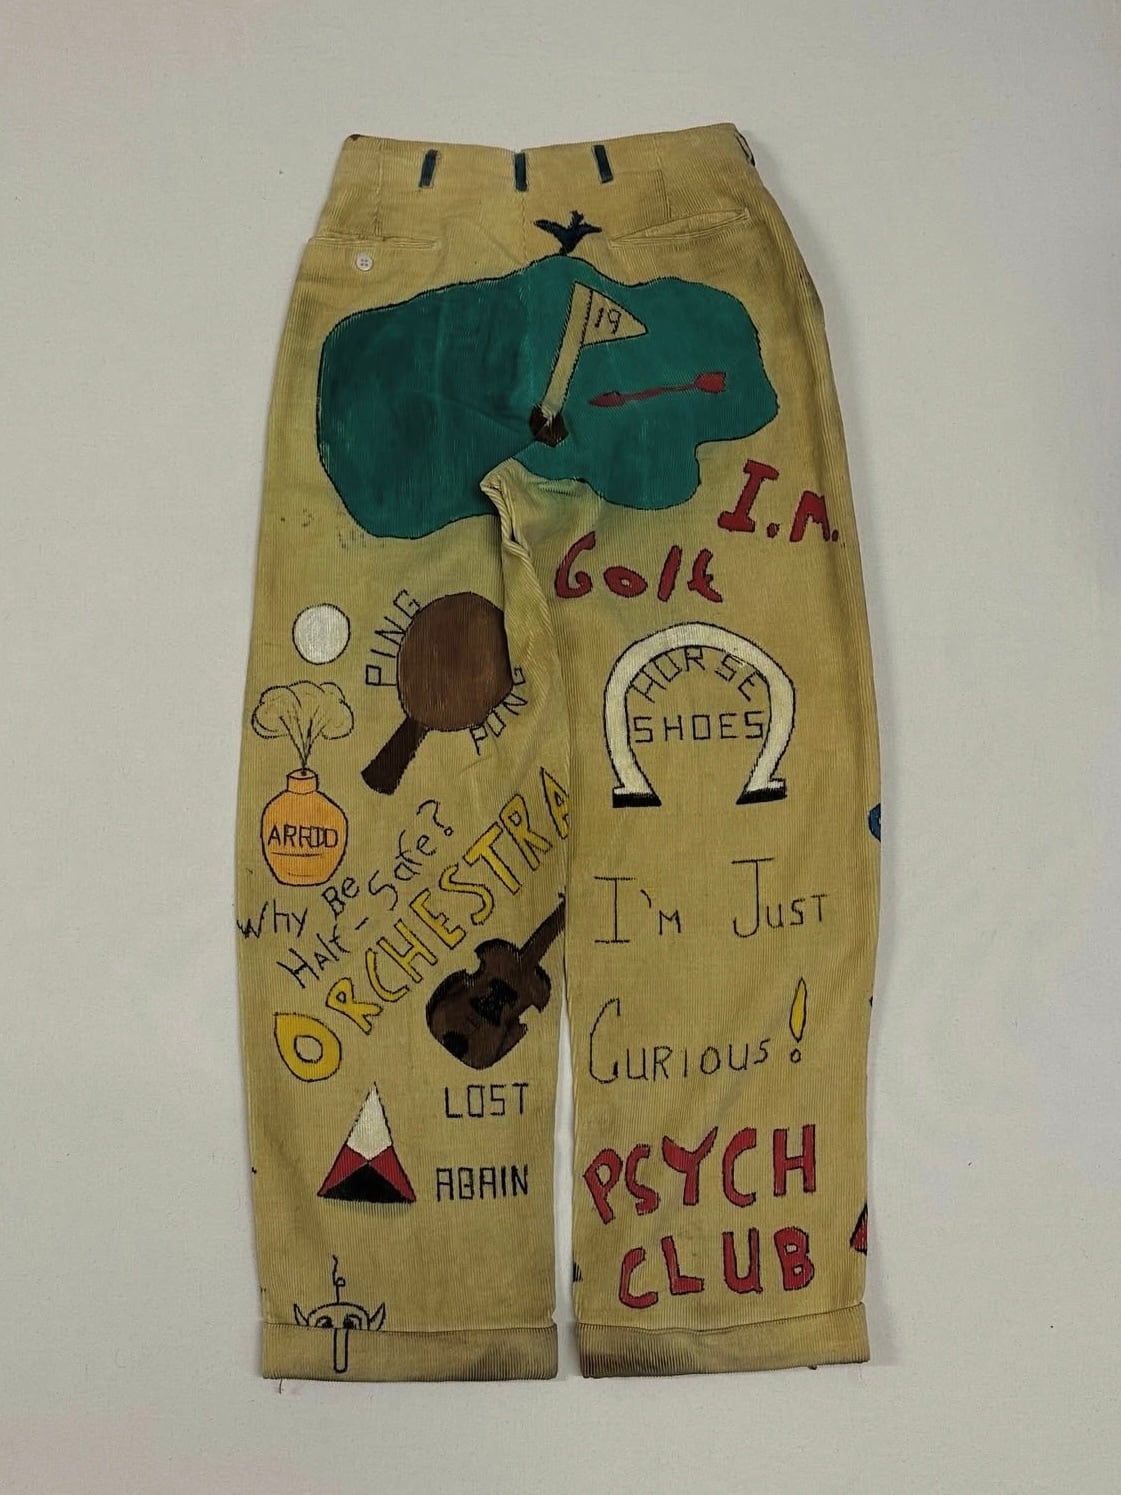 19
I.M.
Golf
PING
PONG
HORSE
SHOES
ARRID
Why Be
Half-Safe?
ORCHESTRA
I'm Just
Curious!
LOST
AGAIN
PSYCH
CLUB